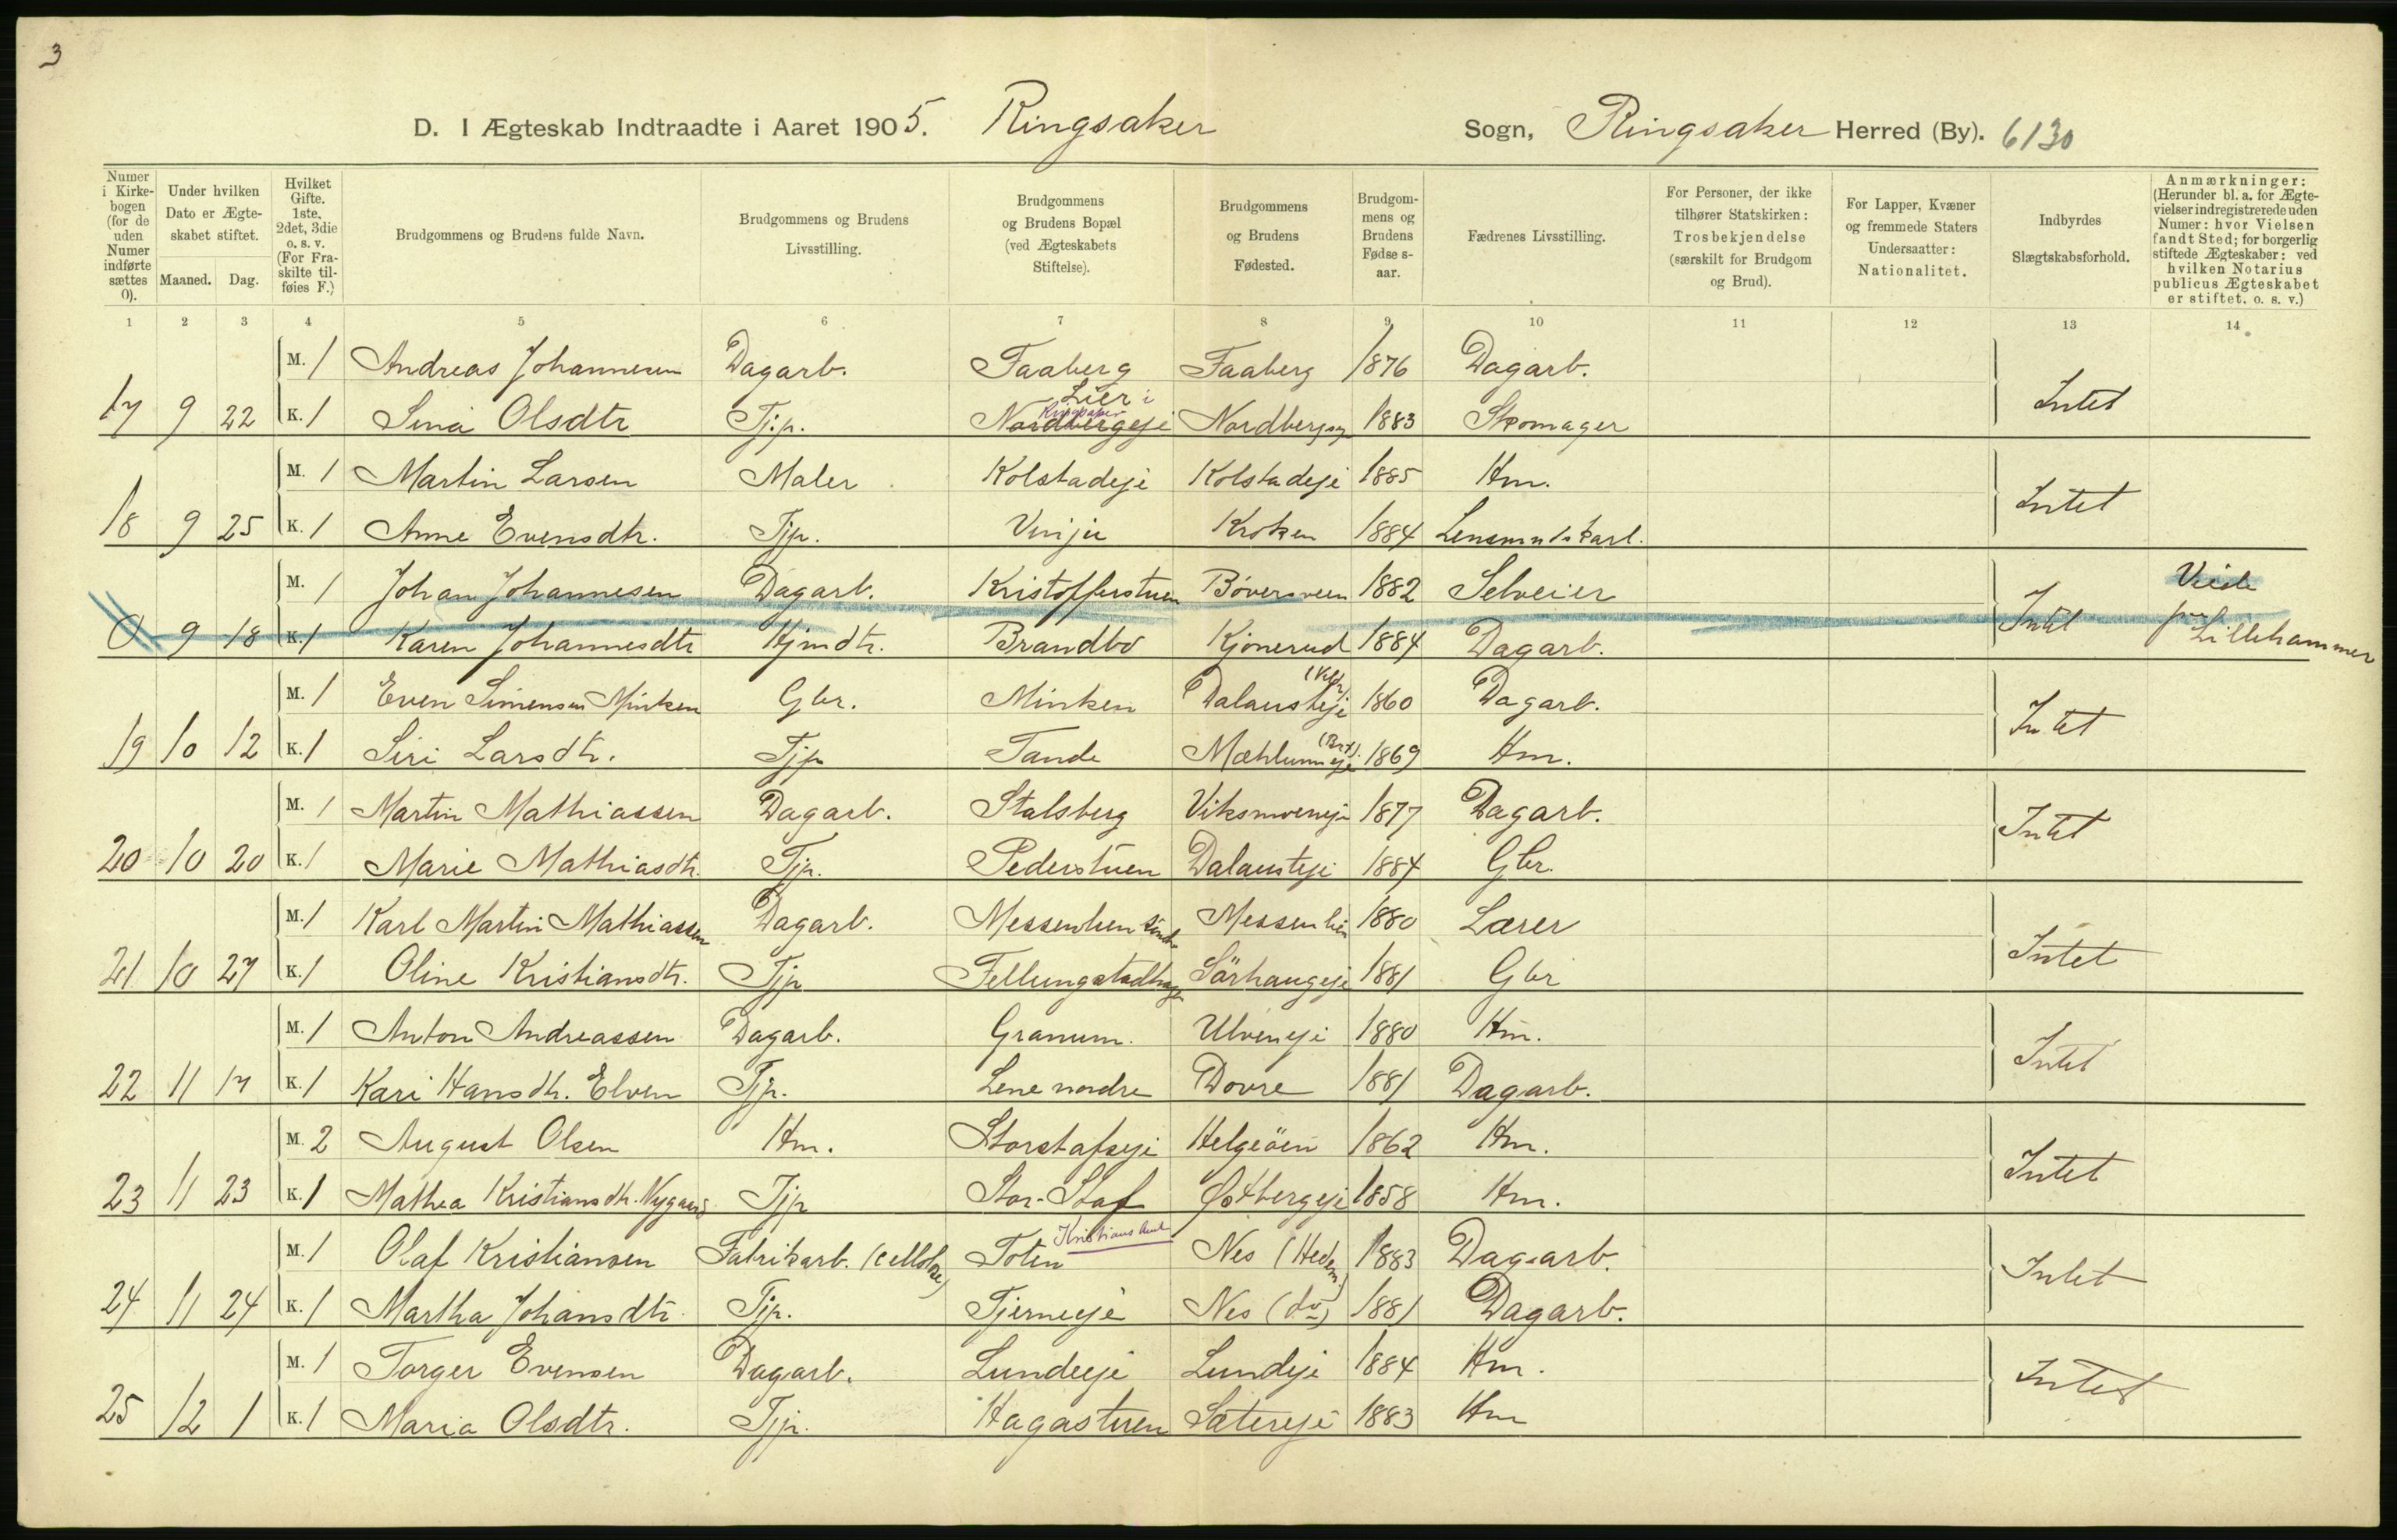 3
D. I Ægteskab Indtraadte i Aaret 1905. Ringsaker Sogn, Ringsaker Herred (By). 6130
Numer i Kirkebogen (for de uden Numer indførte sættes 0).
Under hvilken Dato er Ægteskabet stiftet.
Maaned. Dag.
Hvilket Gifte. 1ste, 2det, 3die o. s. v. (For Fraskilte tilføies F.)
Brudgommens og Brudens fulde Navn.
Brudgommens og Brudens Livsstilling.
Brudgommens og Brudens Bopæl (ved Ægteskabets Stiftelse).
Brudgommens og Brudens Fødested.
Brudgommens og Brudens Fødselsaar.
Fædrenes Livsstilling.
For Personer, der ikke tilhører Statskirken: Trosbekjendelse (særskilt for Brudgom og Brud).
For Lapper, Kvæner og fremmede Staters Undersaatter: Nationalitet.
Indbyrdes Slægtskabsforhold.
Anmærkninger: (Herunder bl. a. for Ægtevielser indregistrerede uden Numer: hvor Vielsen fandt Sted; for borgerlig stiftede Ægteskaber: ved hvilken Notarius publicus Ægteskabet er stiftet. o. s. v.)
1 2 3 4 5 6 7 8 9 10 11 12 13 14
M. 1 Andreas Johannesen Dagarb. Faaberg Faaberg 1876 Dagarb.
Lier i Ringsaker
17 9 22 K. 1 Sina Olsdtr Tjp. Nordbergeje Nordbergeje 1883 Skomager Intet
M. 1 Martin Larsen Maler Kolstadeje Kolstadeje 1885 Hm.
18 9 25 K. 1 Anne Evensdtr. Tjp. Vinju Kroken 1884 Lensmandskarl. Intet
M. 1 Johan Johannesen Dagarb. Kristofferstuen Böversveen 1882 Selveier Viede
0 9 18 K. 1 Karen Johannesdtr Hjmdtr. Brandbo Kjönerud 1884 Dagarb. Intet Lillehammer
M. 1 Even Simensen Minken Gbr. Minken Dalausteje 1860 Dagarb.
19 10 12 K. 1 Siri Larsdtr. Tjp Tande Mæhlumeje (Brt). 1869 Hm. Intet
M. 1 Martin Mathiassen Dagarb. Stalsberg Viksmoeneje 1877 Dagarb.
20 10 20 K. 1 Marie Mathiasdtr. Tjp. Pederstuen Dalausteje 1884 Gbr. Intet
M. 1 Karl Martin Mathiassen Dagarb. Messenlien söndre Messenlien 1880 Lærer
21 10 27 K. 1 Oline Kristiansdtr. Tjp Fellungstadhage Sörhaugeje 1881 Gbr Intet
M. 1 Anton Andreassen Dagarb. Granum. Ulveneje 1880 Hm.
22 11 17 K. 1 Kari Hansdtr. Elven Tjp. Lene nordre Dovre 1881 Dagarb. Intet
M. 2 August Olsen Hm. Storstafseje Helgeöen 1862 Hm.
23 11 23 K. 1 Mathea Kristiansdtr. Nygaard Tjp Stor-Staf Østbergeje 1858 Hm. Intet
M. 1 Olaf Kristiansen Fabrikarb. (cellulose) Toten Kristians Amt Nes (Hedem.) 1883 Dagarb.
24 11 24 K. 1 Martha Johansdtr. Tjp. Tjerneeje Nes (do) 1881 Dagarb. Intet
M. 1 Torger Evensen Dagarb. Lundeeje Lundeje 1884 Hm.
25 12 1 K. 1 Maria Olsdtr. Tjp. Hagastuen Sætereje 1883 Hm Intet